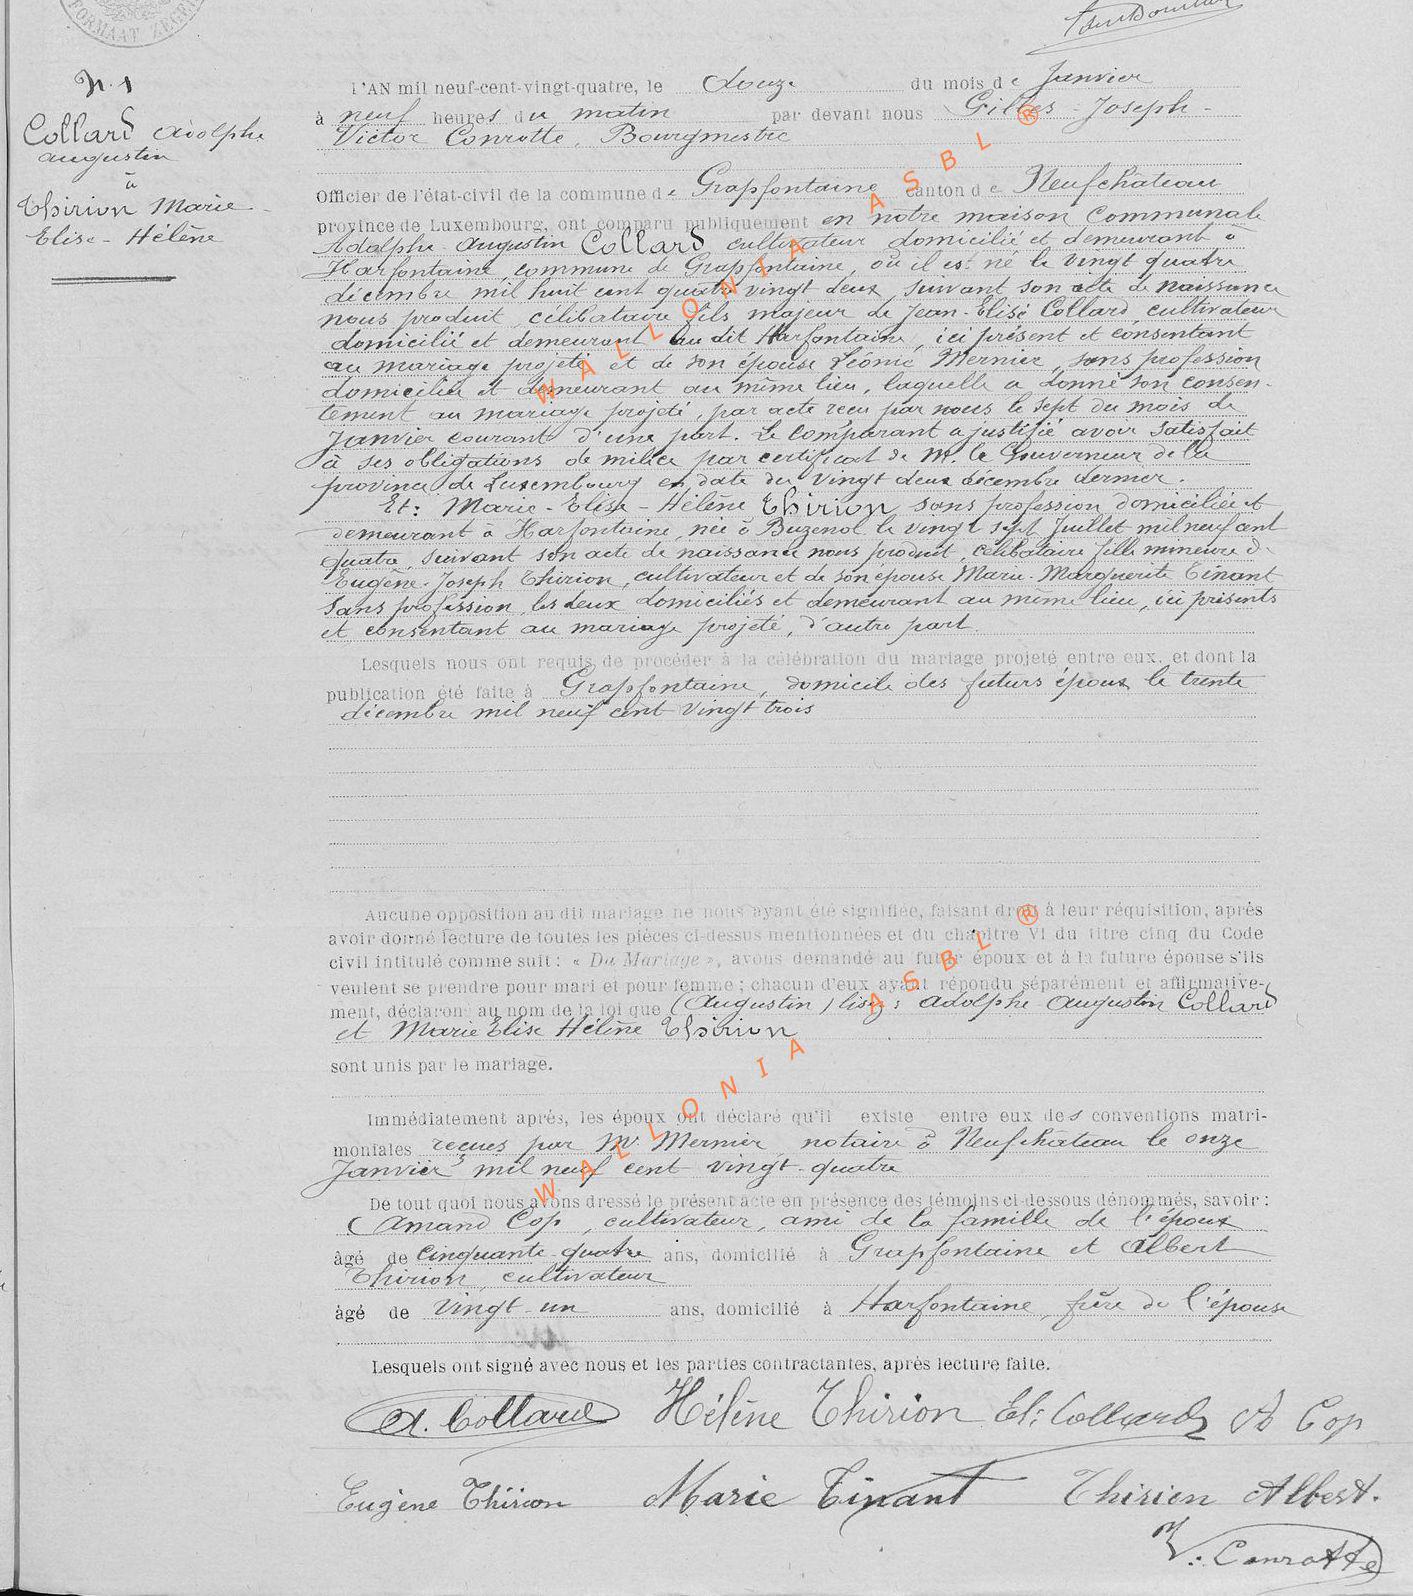 FORMAAT ZEGEL
N. 1
Collard Adolphe
Augustin
à
Thirion Marie
Elise - Hélène
L'AN mil neuf-cent-vingt-quatre, le douze du mois de Janvier
à neuf heures du matin par devant nous Gilles - Joseph -
Victor Conrotte, Bourgmestre
Officier de l'état-civil de la commune de Grapfontaine canton de Neufchâteau
province de Luxembourg, ont comparu publiquement en notre maison Communale
Adolphe - Augustin Collard cultivateur domicilié et demeurant à
Harfontaine, commune de Grapfontaine, où il est né le vingt quatre
décembre mil huit cent quatre vingt deux, suivant son acte de naissance
nous produit, célibataire fils majeur de Jean-Elisé Collard, cultivateur
domicilié et demeurant au dit Harfontaine, ici présent et consentant
au mariage projeté et de son épouse Léonie Mernier, sans profession
domiciliée et demeurant au même lieu, laquelle a donné son consen-
tement au mariage projeté, par acte reçu par nous le sept du mois de
Janvier courant d'une part. Le comparant a justifié avoir satisfait
à ses obligations de milice par certificat de M. le Gouverneur de la
province de Luxembourg en date du vingt deux décembre dernier.
Et: Marie - Elise - Hélène Thirion sans profession domiciliée et
demeurant à Harfontaine, née à Buzenol le vingt sept Juillet mil neuf cent
quatre, suivant son acte de naissance nous produit, célibataire fille mineure de
Eugène-Joseph Thirion, cultivateur et de son épouse Marie-Marguerite Tinant
sans profession, les deux domiciliés et demeurant au même lieu, ici présents
et consentant au mariage projeté, d'autre part.
Lesquels nous ont requis de procéder à la célébration du mariage projeté entre eux, et dont la
publication été faite à Grapfontaine, domicile des futurs époux le trente
décembre mil neuf cent vingt trois
Aucune opposition au dit mariage ne nous ayant été signifiée, faisant droit à leur réquisition, après
avoir donné lecture de toutes les pièces ci-dessus mentionnées et du chapitre VI du titre cinq du Code
civil intitulé comme suit : « Du Mariage », avons demandé au futur époux et à la future épouse s'ils
veulent se prendre pour mari et pour femme ; chacun d'eux ayant répondu séparément et affirmative-
ment, déclarons au nom de la loi que (Augustin) lisez: Adolphe Augustin Collard
et Marie Elise Hélène Thirion
sont unis par le mariage.
Immédiatement après, les époux ont déclaré qu'il existe entre eux des conventions matri-
moniales reçues par Mr. Mernier, notaire à Neufchâteau le onze
Janvier mil neuf cent vingt-quatre
De tout quoi nous avons dressé le présent acte en présence des témoins ci-dessous dénommés, savoir :
Amand Cop, cultivateur, ami de la famille de l'époux
âgé de cinquante-quatre ans, domicilié à Grapfontaine et Albert
Thirion, cultivateur
âgé de vingt-un ans, domicilié à Harfontaine, frère de l'épouse
Lesquels ont signé avec nous et les parties contractantes, après lecture faite.
A. Collard Hélène Thirion El: Collard A Cop
Eugène Thirion Marie Tinant Thirion Albert.
V. Conrotte
WALLONIA ASBL ®
WALLONIA ASBL ®